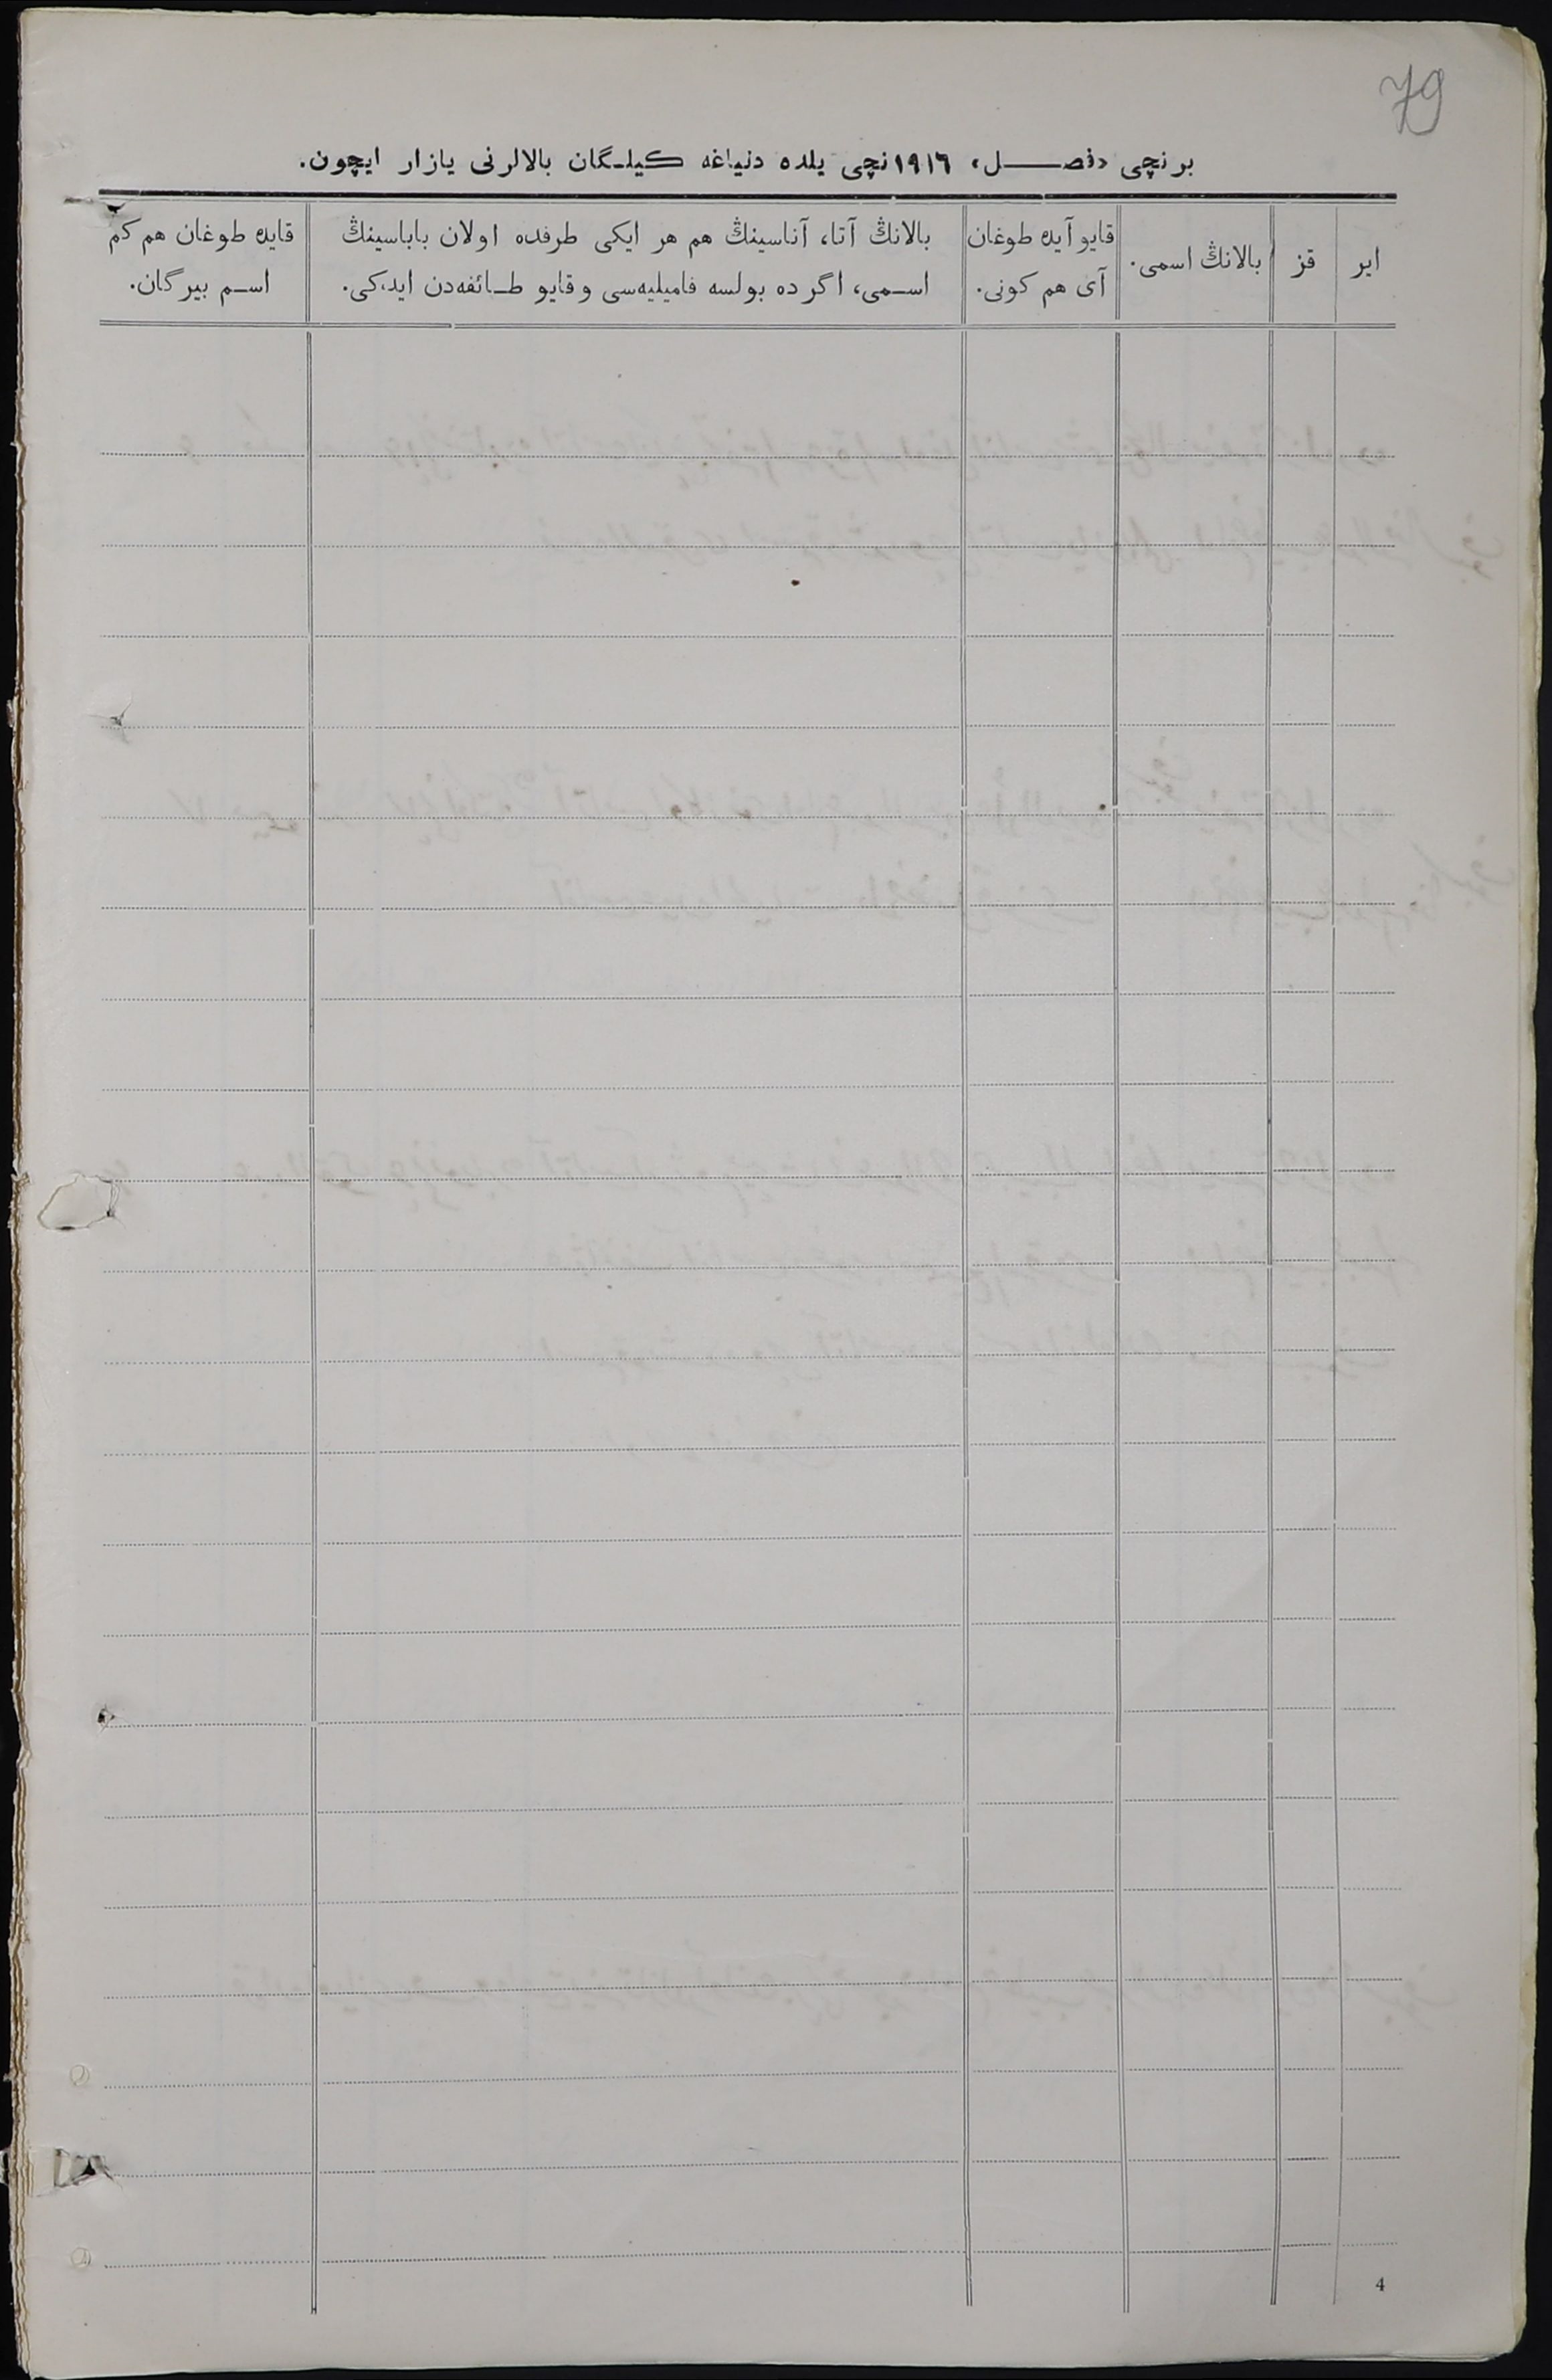 79
برنچی «فصـــــل» ١٩١٦نچی يلده دنياغه كيلـگان بالالرنی يازار ايچون.
اير
قز
بالانڭ اسمی.
قايو آيده طوغان
آی هم كونی.
بالانڭ آتا، آناسينڭ هم هر ايكی طرفده اولان باباسينڭ
اسـمی، اگر ده بولسه فاميليه‌سی و قايو طـائفه‌دن ايدكی.
قايده طوغان هم كم
اسـم بيرگان.
4